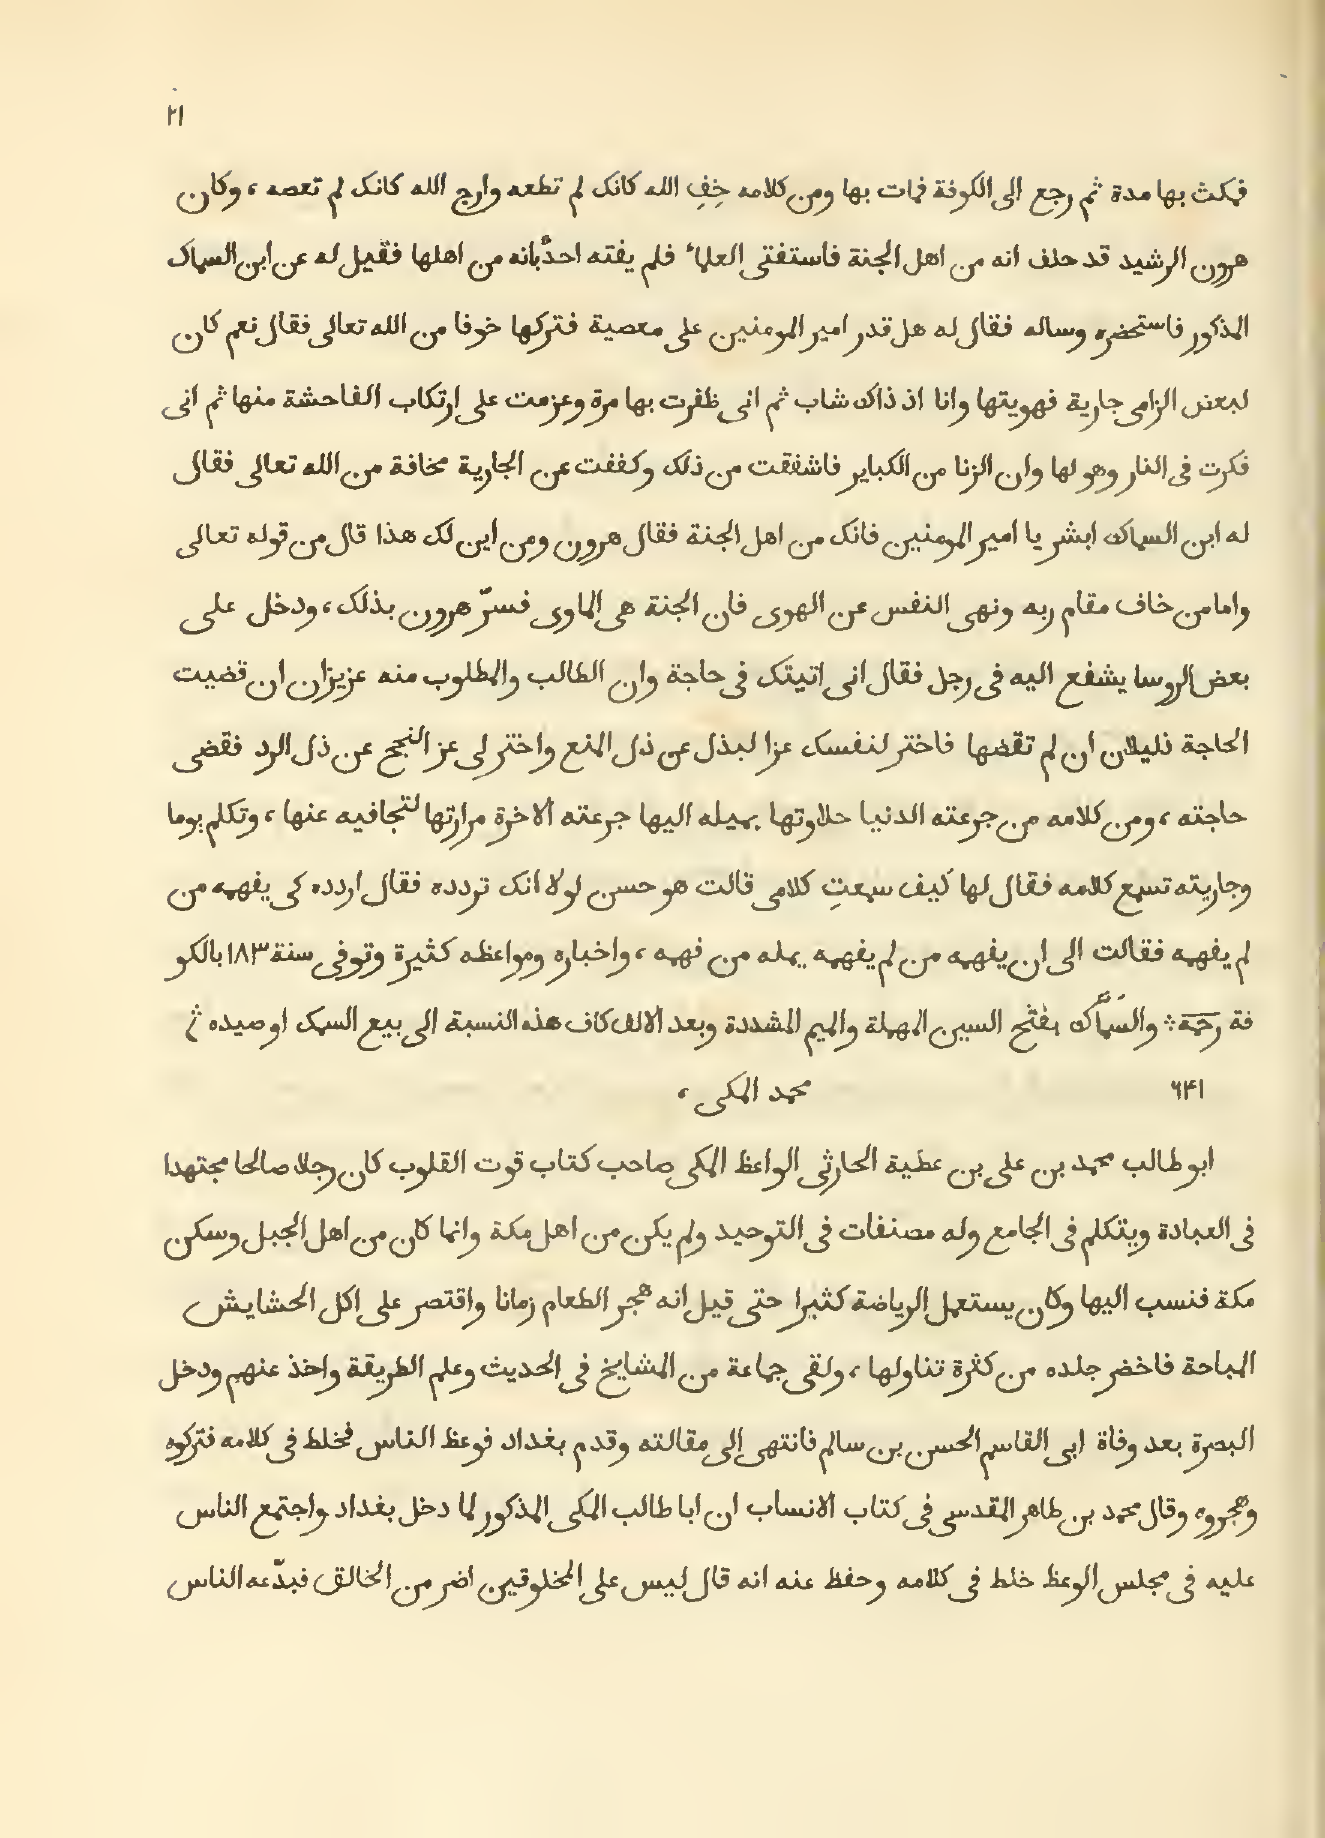 ٢١
فمكث بها مدة ثم رجع الى الكوفة فمات بها ومن كلامه خِفِ الله كانك لم تطعه وارج الله كانك لم تعصه ، وكان
هرون الرشيد قد حلف انه من اهل الجنة فاستفتى العلماء فلم يفته احدٌ بانه من اهلها فقيل له عن ابن السماك
المذكور فاستحضره وساله فقال له هل قدر امير المومنين على معصية فتركها خوفا من الله تعالى فقال نعم كان
لبعض الزامى جارية فهويتها وانا اذ ذاك شاب ثم انى ظفرت بها مرة وعزمت على ارتكاب الفاحشة منها ثم انى
فكرت فى النار وهولها وان الزنا من الكباير فاشفقت من ذلك وكففت عن الجارية مخافة من الله تعالى فقال
له ابن السماك ابشر يا امير المومنين فانك من اهل الجنة فقال هرون ومن اين لك هذا قال من قوله تعالى
وامامن خاف مقام ربه ونهى النفس عن الهوى فان الجنة هى الماوى فسرّ هرون بذلك ، ودخل على
بعض الروسا يشفع اليه فى رجل فقال انى اتيتك فى حاجة وان الطالب والمطلوب منه عزيزان ان قضيت
الحاجة ذليلان ان لم تقضها فاختر لنفسك عز البذل عن ذل المنع واختر لى عز النجح عن ذل الرد فقضى
حاجته ، ومن كلامه من جرعته الدنيا حلاوتها بميله اليها جرعته الاخرة مرارتها لتجافيه عنها ، وتكلم يوما
وجاريته تسمع كلامه فقال لها كيف سمعتِ كلامى قالت هو حسن لولا انك تردده فقال اردده كى يفهمه من
لم يفهمه فقالت الى ان يفهمه من لم يفهمه يمله من فهمه ، واخباره ومواعظه كثيرة وتوفى سنة ١٨٣ بالكو
فة رحمة ؞ والسَمَّاك بفتح السين المهملة والميم المشددة وبعد الالف كاف هذه النسبة الى بيع السمك او صيده ثم
٦٤١ محمد المكى ،
ابو طالب محمد بن على بن عطية الحارثى الواعظ المكى صاحب كتاب قوت القلوب كان رجلا صالحا مجتهدا
فى العبادة ويتكلم فى الجامع وله مصنفات فى التوحيد ولم يكن من اهل مكة وانما كان من اهل الجبل وسكن
مكة فنسب اليها وكان يستعمل الرياضة كثيرا حتى قيل انه هجر الطعام زمانا واقتصر على اكل الحشايش
المباحة فاخضر جلده من كثرة تناولها ، ولقى جماعة من المشايخ فى الحديث وعلم الطريقة واخذ عنهم ودخل
البصرة بعد وفاة ابى القاسم الحسن بن سالم فانتهى إلى مقالته وقدم بغداد فوعظ الناس فخلط فى كلامه فتركوه
وهجروه وقال محمد بن طاهر المقدسى فى كتاب الانساب ان ابا طالب المكى المذكور لما دخل بغداد واجتمع الناس
عليه فى مجلس الوعظ خلط فى كلامه وحفظ عنه انه قال ليس على المخلوقين اضر من الخالق فبدّعه الناس